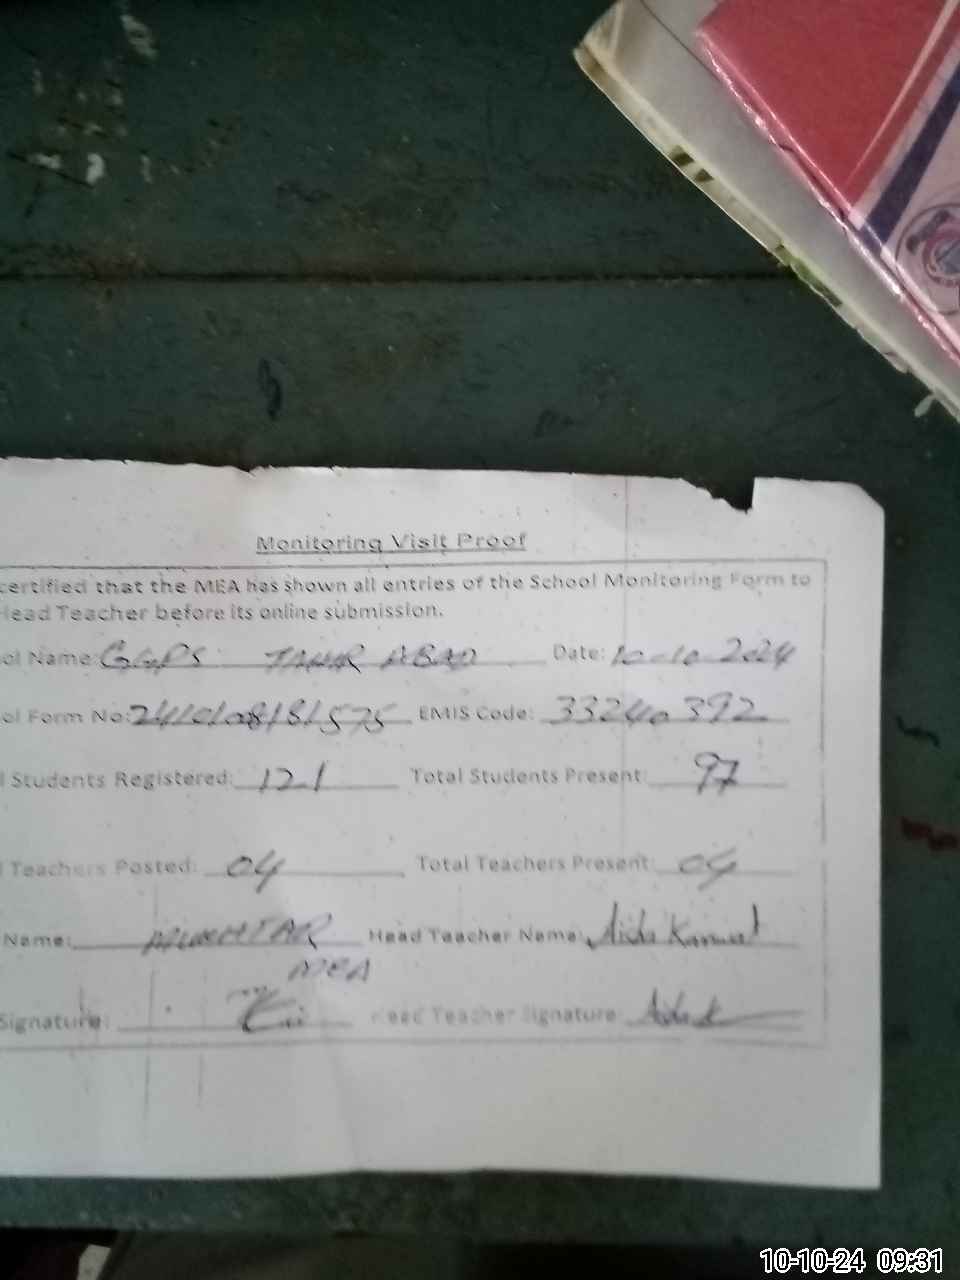 Monitoring Visit Proof
certified that the MEA has shown all entries of the School Monitoring Form to
Head Teacher before its online submission.
ol Name: GGPS TAHIR ABAD Date: 10-10-2024
ol Form No: EMIS Code: 33240392
l Students Registered: 121 Total Students Present: 97
l Teachers Posted: 04 Total Teachers Present: 04
Name: MUKHTAR Head Teacher Name: Aisha Kanwal
MEA
Signature: Head Teacher Signature:
10-10-24 09:31